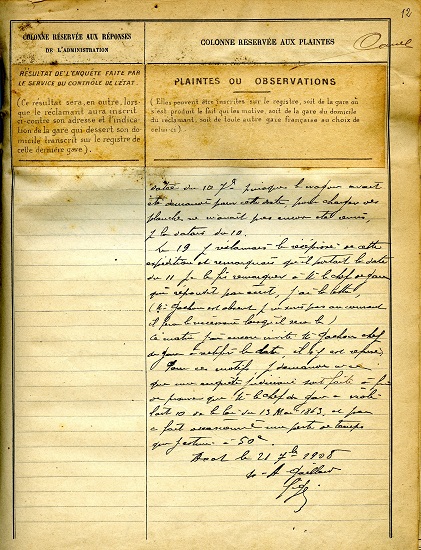 12
COLONNE RÉSERVÉE AUX RÉPONSES
DE L'ADMINISTRATION
COLONNE RESERVÉE AUX PLAINTES
RÉSULTAT DE L'ENQUÊTE FAITE PAR
LE SERVICE DU CONTRÔLE DE L'ÉTAT.
(Ce résultat sera, en outre, lors-
que le réclamant aura inscrit
ci-contre son adresse et l'indica-
tion de la gare qui dessert son do-
micile transcrit sur le registre de
celle dernière gare).
PLAINTES OU OBSERVATIONS
(Elles peuvent être inscrites sur le registre, soit de la gare où
s'est produit le fait qui les motive, soit de la gare du domicile
du réclamant, soit de toute autre gare française au choix de
celui-ci)
datée du 10 7bre puisque le wagon avait
été demandé pour cette date, pour charger des
planches ne m'avait pas encore été remis,
je la datais du 10.
Le 19 je réclamais le récépissé de cette
expédition et remarquais qu'il portait la date
du 11 je le fis remarquer à Mr le chef de gare
qui répondit
(Mr Gachon est absent je ne suis pas au courant
il fera le nécessaire lorsqu'il sera là)
Ce matin j'ai encore invité Mr Gachon chef
de gare à rectifier la date, il s'y est refusé
Pour ce motif, je demande
que une enquête judiciaire soit faite à fin
de prouver que Mr le chef de gare a
10 de la loi du 13 Mai 1863, et par
ce fait occasionné une perte de temps
que j'estime à 50c.
le 21 7bre 1908
A Gaillard